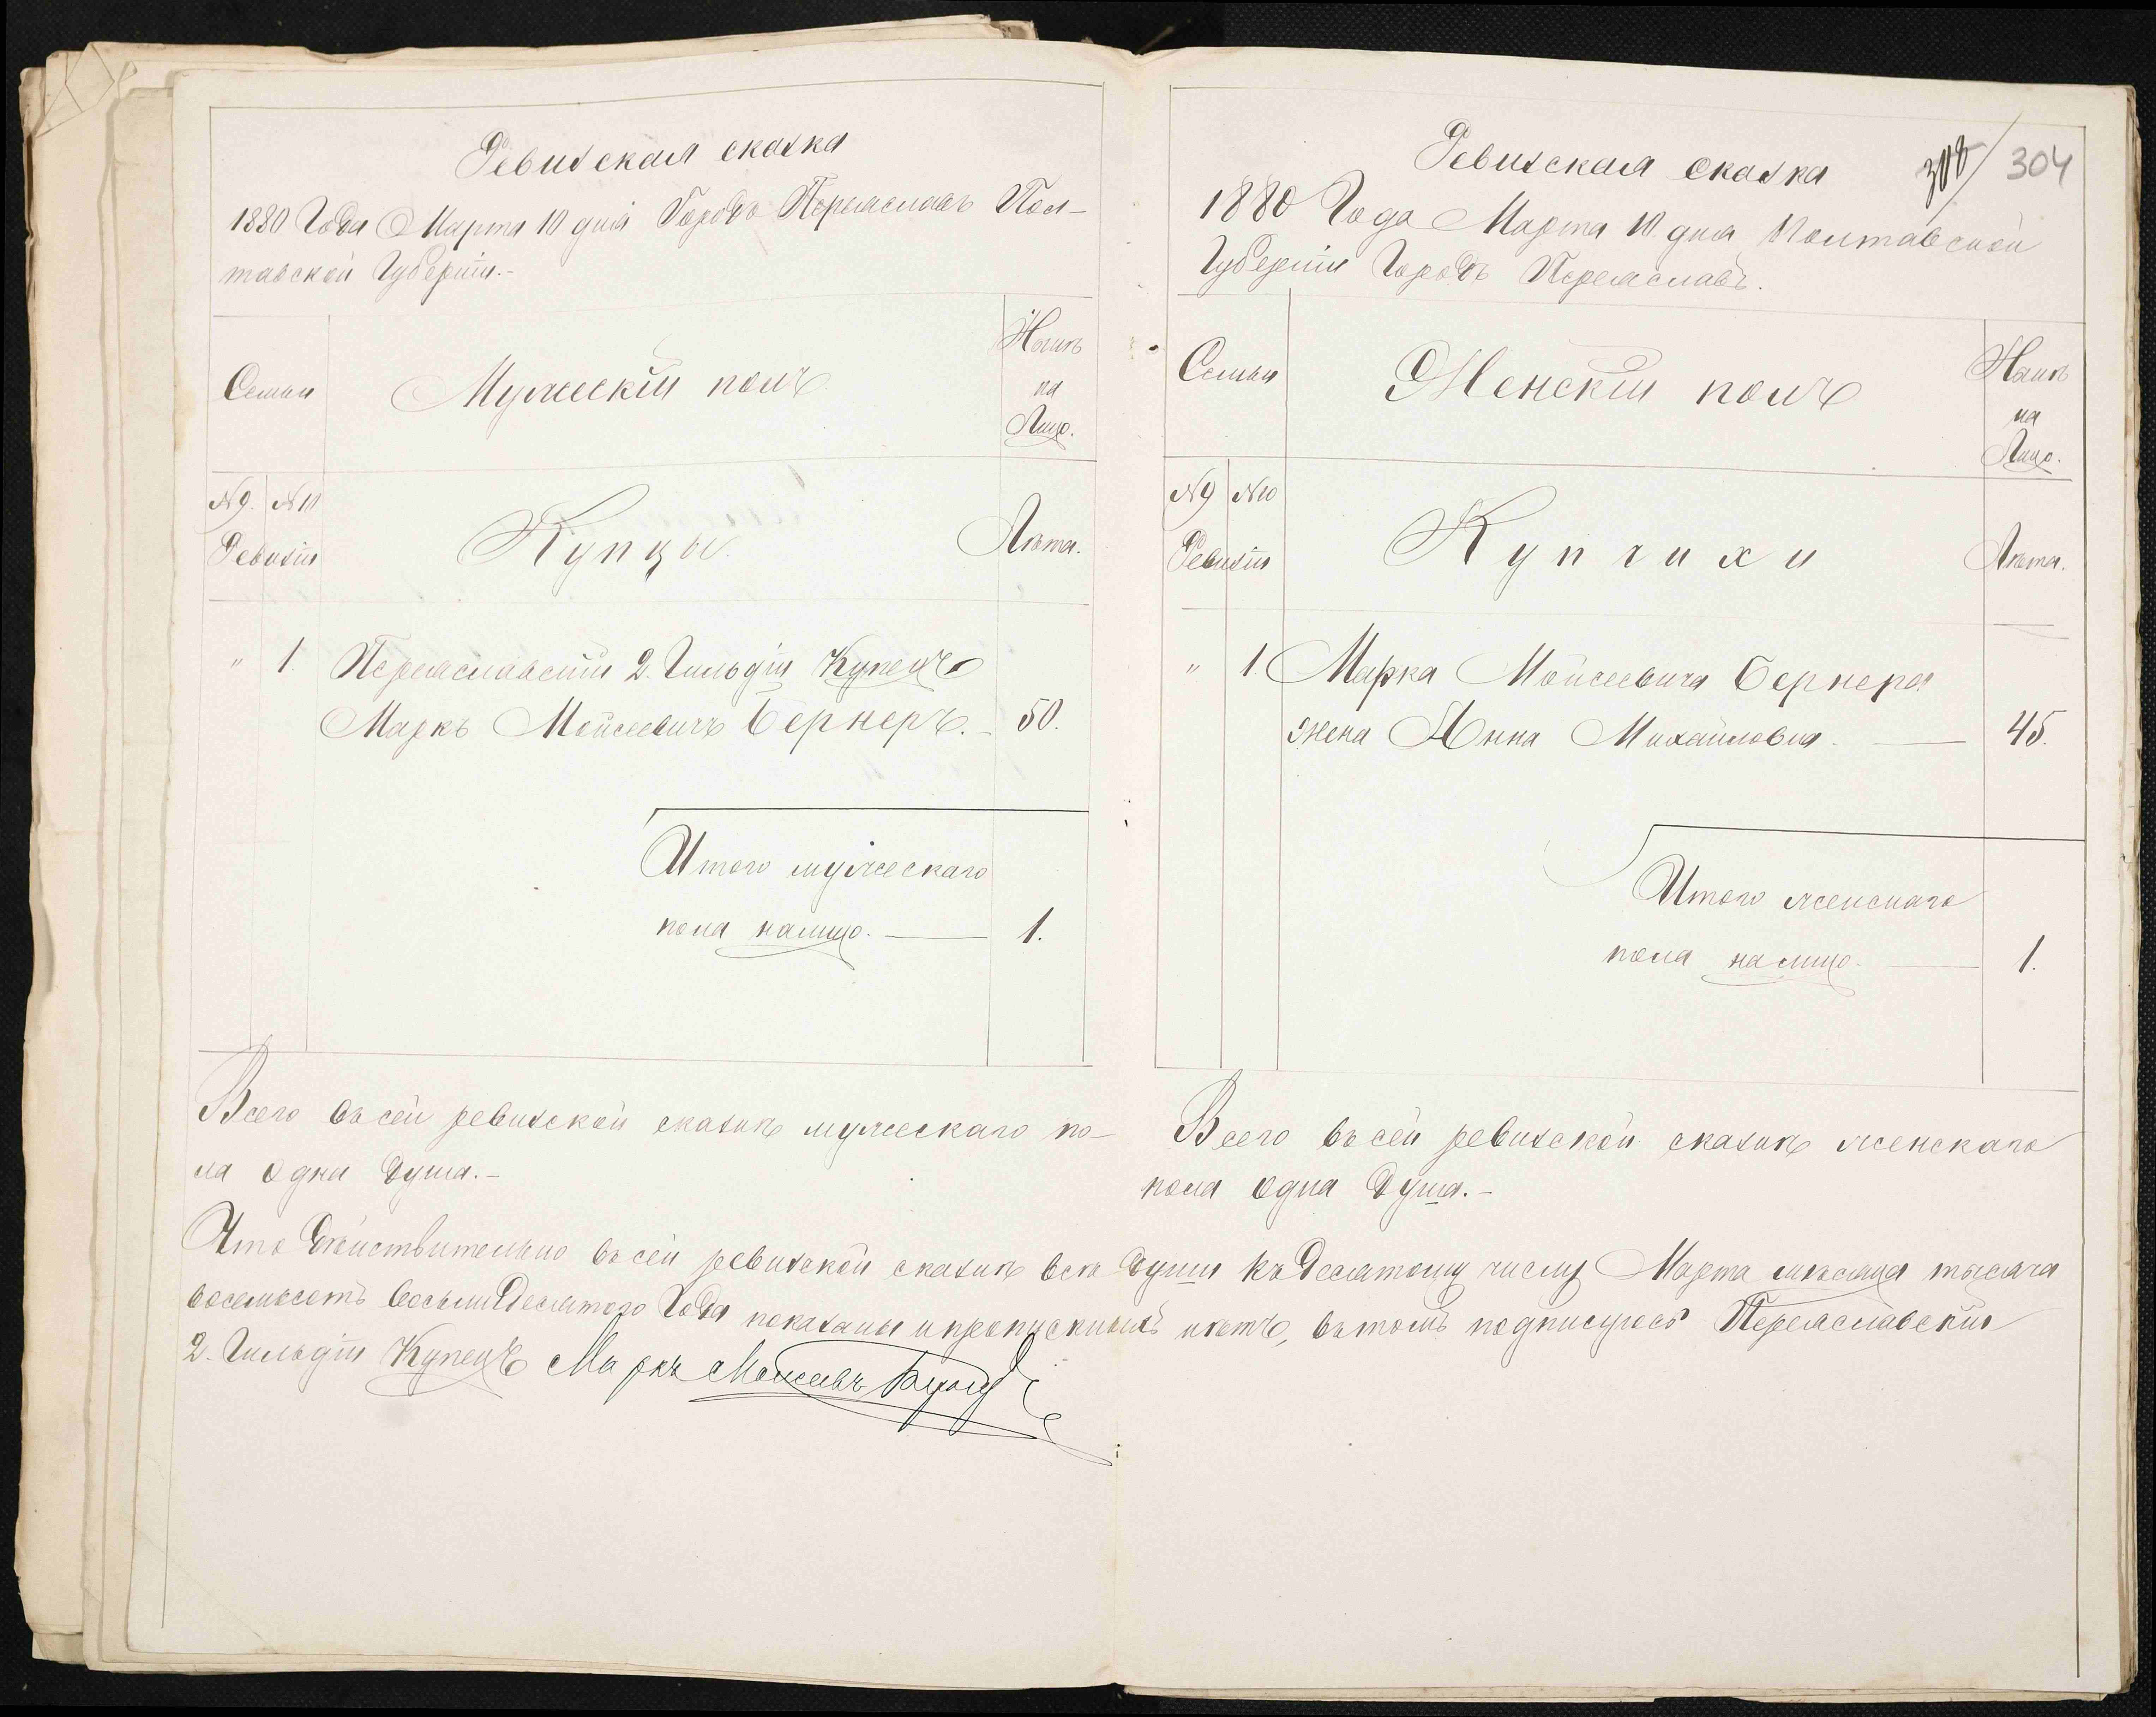 Ревизская сказка
1880 Года Марта 10 дня Городъ Переяславъ Пол-
тавской Губерніи.-
Семьи
Мужескій полъ
Нынѣ
на
Лицо.
№9. №10
Ревизіи
Купцы.
Лѣта.
" 1. Переяславскій 2. Гильдіи Купецъ
Маркъ Мойсеевичъ Бернеръ. - 50.
Итого мужескаго
пола налицо. — 1.
Всего въ сей ревизской сказкѣ мужескаго по-
ла одна душа.-
Ревизская сказка
308 304
1880 Года Марта 10 дня Полтавской
Губерніи Городъ Переяславъ.
Семьи
Женскій полъ
На
Лицо.
№9 №10
Ревизіи
Купчихи
Лѣта.
" 1 Марка Мойсеевича Бернера
жена Анна Михайловна. — 45.
Итого женскаго
пола налицо. — 1.
Всего въ сей ревизской сказкѣ женскаго
пола одна душа.-
Что дѣйствительно въ сей ревизской сказкѣ всѣ души къ десятому числу Марта мѣсяца тысяча
восемьсотъ восьмидесятого Года показаны и пропускныхъ нѣтъ, въ томъ подписуюсь Переяславскій
2. Гильдіи Купецъ Маркъ Мойсеевъ